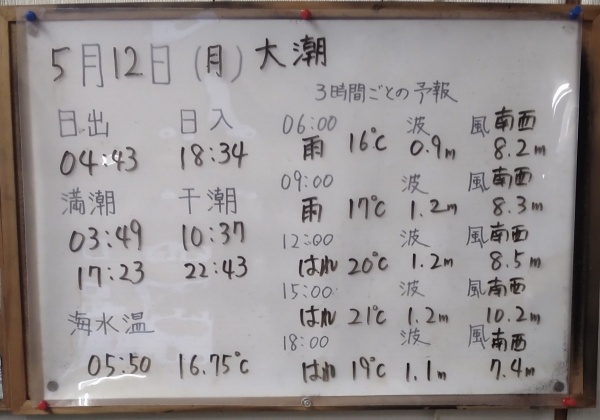 5月12日(月)大潮
3時間ごとの予報
日出 日入
04:43 18:34
満潮 干潮
03:49 10:37
17:23 22:43
海水温
05:50 16.75℃
06:00 波 風南西
雨 16℃ 0.9m 8.2m
09:00 波 風南西
雨 17℃ 1.2m 8.3m
12:00 波 風南西
はれ 20℃ 1.2m 8.5m
15:00 波 風南西
はれ 21℃ 1.2m 10.2m
18:00 波 風南西
はれ 19℃ 1.1m 7.4m